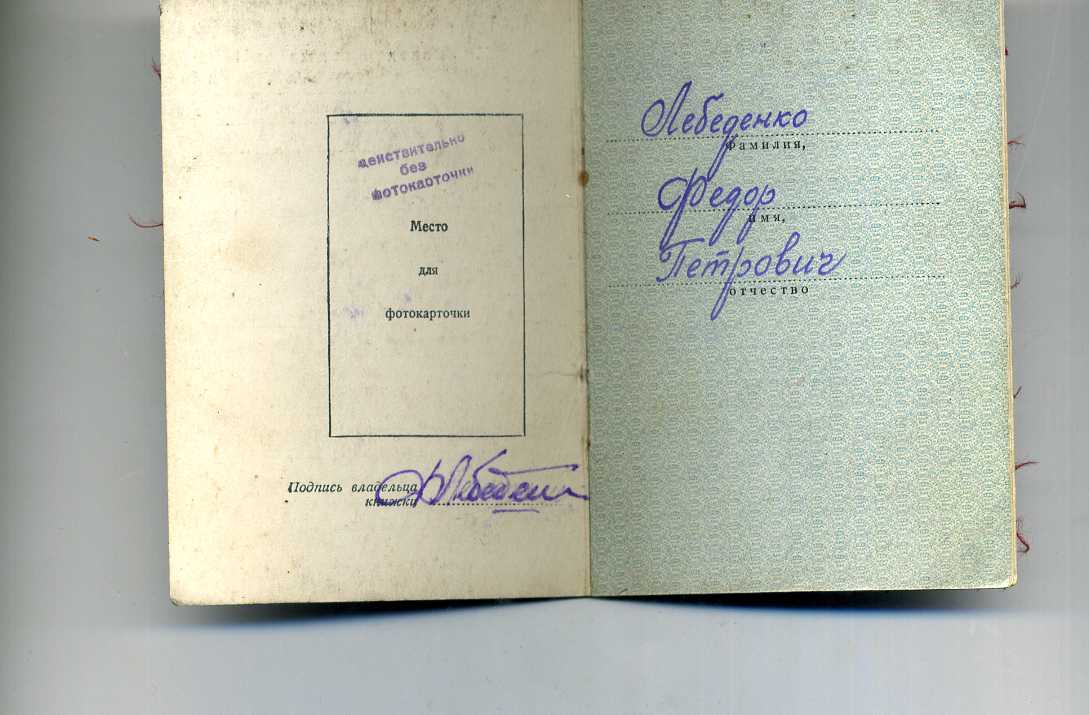 действительно
без
фотокарточки
Место
для
фотокарточки
Подпись владельца
книжки
Лебеденко
фамилия,
Федор
имя,
Петрович
отчество